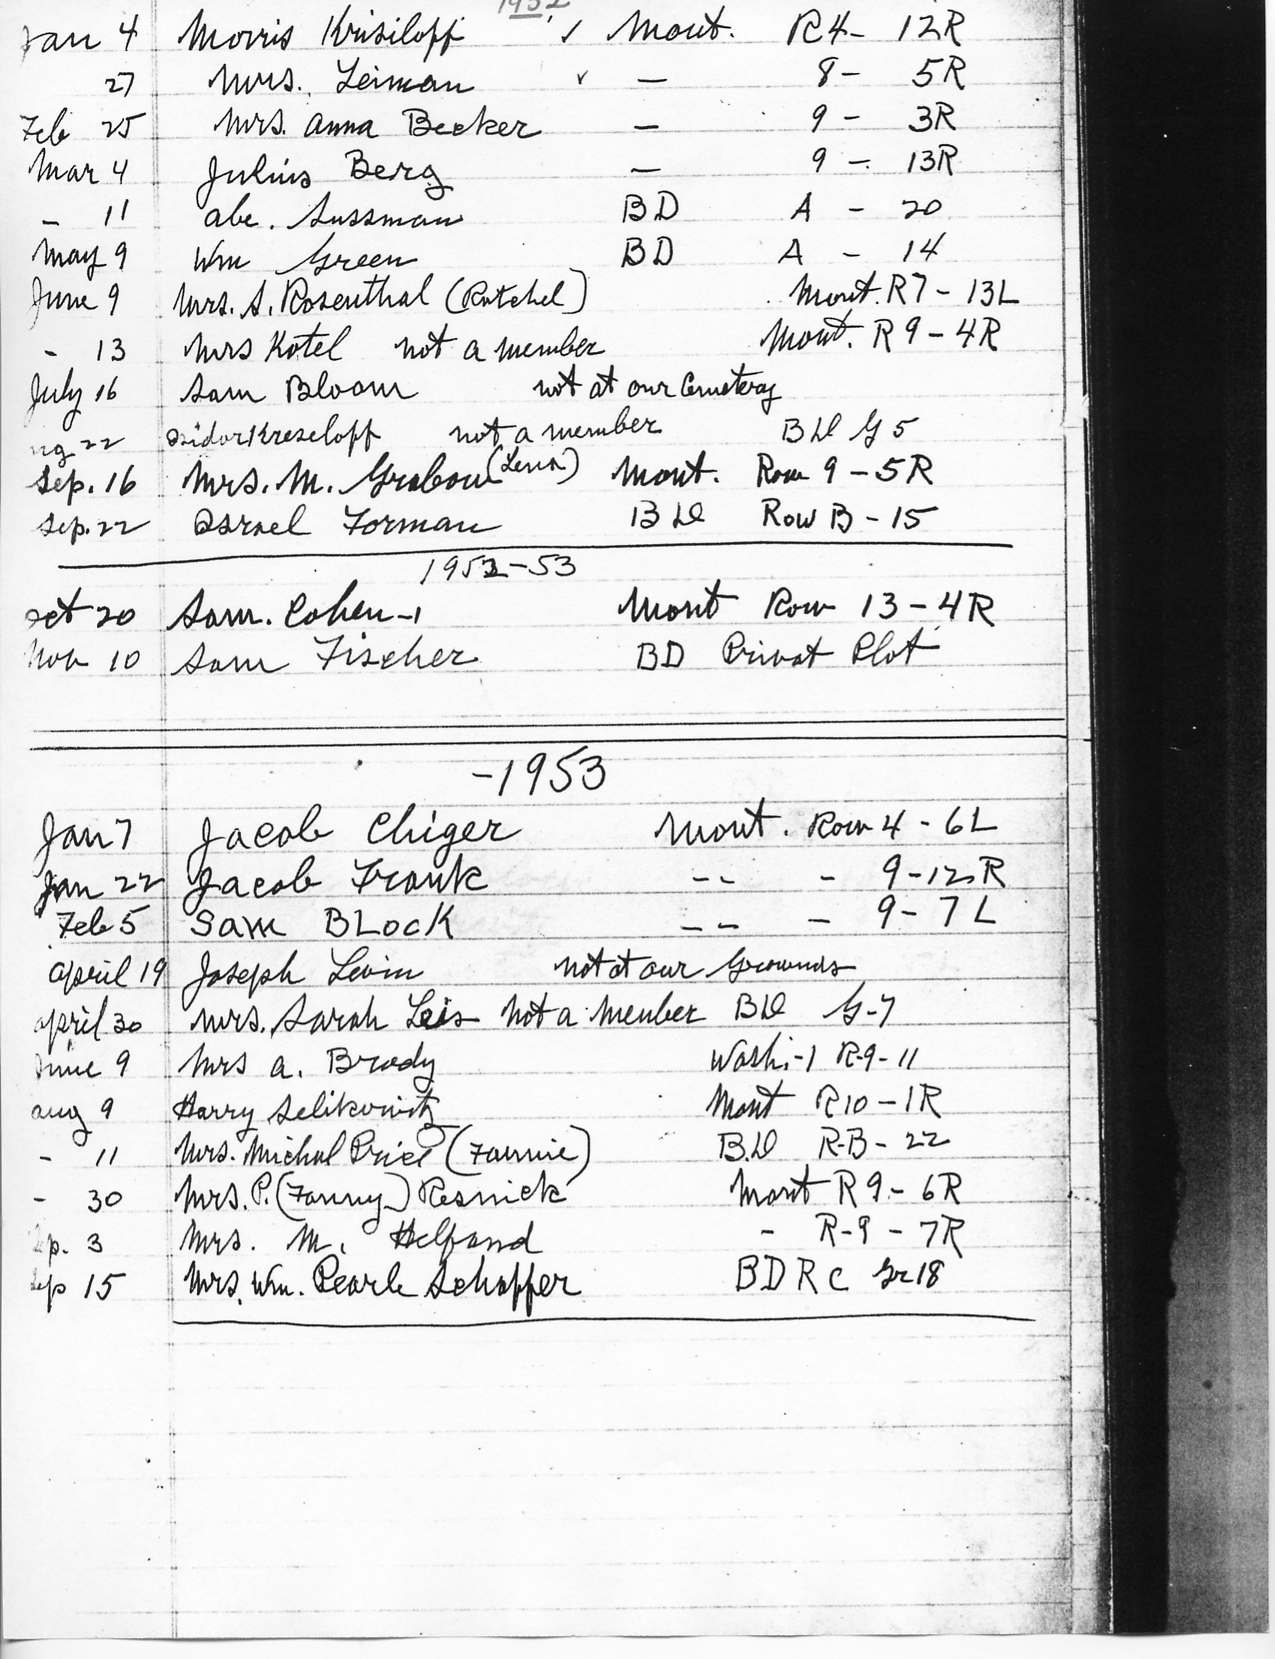 1952
Jan 4 Morris Krisiloff ✓ Mont. R4- 12R
27 Mrs. Leiman ✓ — 8- 5R
Feb 25 Mrs. Anna Becker — 9- 3R
Mar 4 Julius Berg — 9- 13R
- 11 Abe. Sussman BD A - 20
May 9 Wm Green BD A - 14
June 9 Mrs. S. Rosenthal (Ratchel) Mont. R7- 13L
- 13 Mrs Kotel not a member Mont. R9-4R
July 16 Sam Bloom not at our Cemetery
ug 22 Isidor Kreseloff not a member BD G5
Sep. 16 Mrs. M. Grabow (Lena) Mont. Row 9-5R
Sep. 22 Israel Forman BD Row B-15
1952-53
Oct 20 Sam. Cohen-1 Mont Row 13-4R
Nov 10 Sam Fischer BD Privat Plot
-1953
Jan 7 Jacob Chiger Mont. Row 4-6L
Jan 22 Jacob Frank -- - 9-12R
Feb 5 Sam BLock -- - 9-7L
April 19 Joseph Levin not at our Grounds
April 30 Mrs. Sarah Leis Not a Member BD G-7
June 9 Mrs A. Brody Wash.-1 R-9-11
Aug 9 Harry Selikowitz Mont R10-1R
- 11 Mrs. Michal Price (Fannie) B.D R-B-22
- 30 Mrs. P. (Fanny) Resnick Mont R9-6R
ep. 3 Mrs. M. Helfand - R-9-7R
Sep 15 Mrs. Wm. Pearle Schaffer BD R C Gr 18